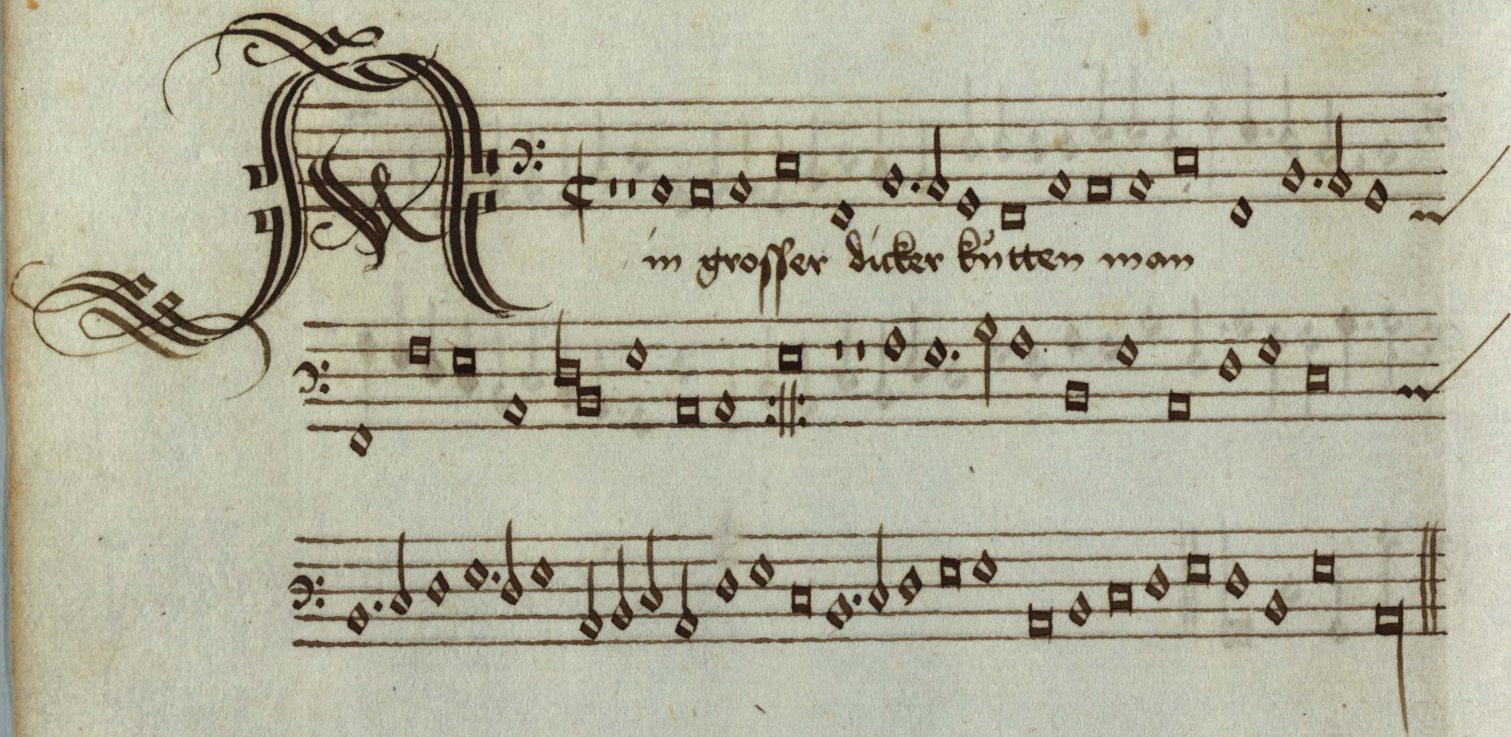 Ain groſſer dicker kůtten man